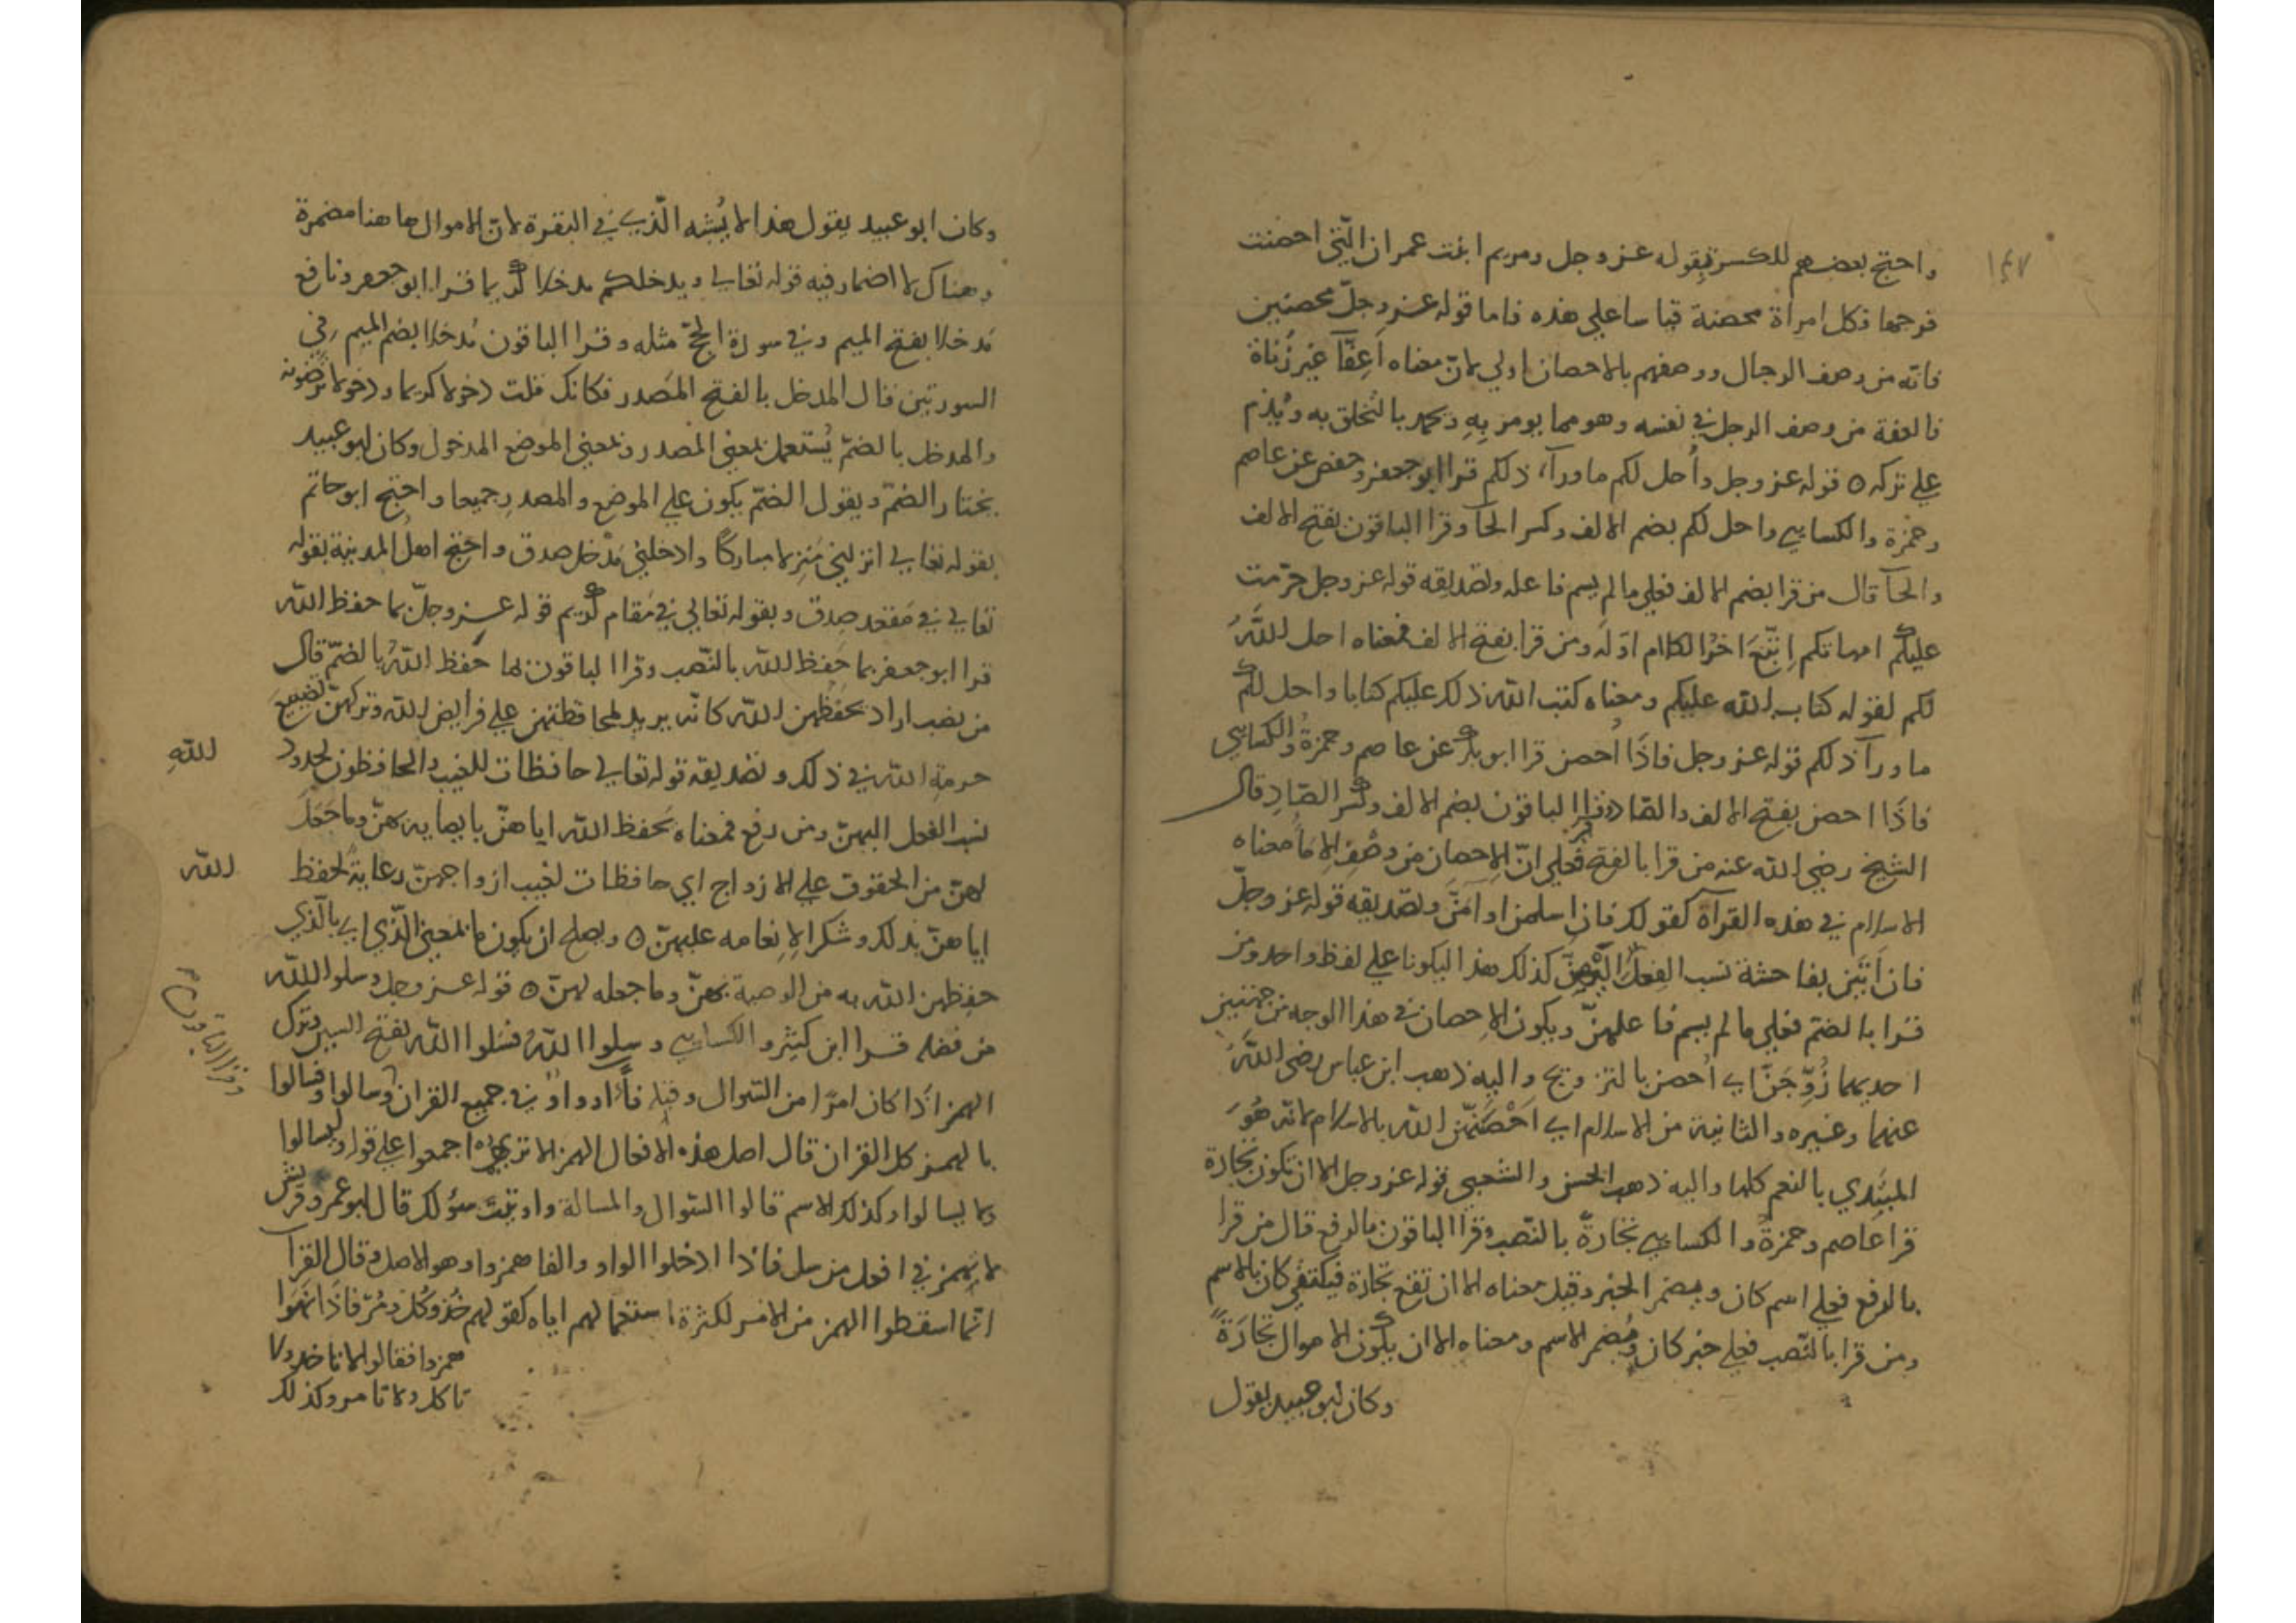 ١٤٧
واحتج بعضهم للكسرة بقوله عز وجل ومريم ابنت عمران الّتي احصنت
فرجها فكل امراة محصنة قياسا علي هذه فاما قوله عز وجلّ محصنين
فانّه من وصف الرجال ووصفهم بالاحصان اولي لانّ معناه اَعِفّآ غير زُناة
فالعفة من وصف الرجل في نفسه وهو مما يومر بِهِ ويحمد بالتخلق به ويُذم
علي تركه ٥ قوله عز وجل واُحل لكم ما ورآء ذلكم قرا ابو جعفر وحفص عن عاصم
وحمزة والكسايي واحل لكم بضم الالف وكسر الحآ وقرا الباقون بفتح الالف
والحآ قال من قرا بضم الالف فعلي ما لم يسم فاعله وتصديقه قوله عز وجل حرّمت
عليكم امهاتكم اِتبّعَ اخرُ الكلام اوّله ومن قرا بفتح الالف فمعناه احل اللهُ
لكم لقوله كتاب الله عليكم ومعناه كتب الله ذلك عليكم كتابا واحل لكم
ما ورآ ذلكم قوله عز وجل فاذَا اُحصن قرا ابو بكر عن عاصم وحمزةُ والكسايي
فاذَا احصن بفتح الالف والصّاد وقرا الباقون بضم الالف وكسر الصّادِ قال
الشيخ رضي الله عنه من قرا بالفتح فعلي انّ الاِحصان من وصْف الاِمآ معناه
الاسلام في هذه القرآة كقولك فاذا اسلمن او اَمَنَّ وتصديقه قوله عز وجلّ
فان اَتَين بفاحشة نسب الفعلُ اليْهنّ كذلك هذا ليكونا علي لفظ واحد ومن
قرا بالضمّ فعلي ما لم يسم فاعلهنّ ويكون الاِحصان في هذا الوجه من جهتين
احديهما زُوِّجَنّ اي اُحصن بالتزويج واليه ذهب ابن عباس رضي اللهُ
عنهما وغيره والثانية من الاسلام اي اَحْصَنَهّن الله بالاسلام لانّه هُوَ
المبتدي بالنعم كلها واليه ذهب الحسن والشعبي قوله عز وجل الا ان تكون تجارة
قرا عاصم وحمزةُ والكسايي تجارةً بالنّصب وقرا الباقون بالرفع قال من قرا
بالرفع فعلي اسم كان ويضمر الخبر وقيل معناه الا ان تقع تجارة فيكتفي كان بالاسم
ومن قرا بالنّصب فعلي خبر كان ويُضمر الاسم ومعناه الا ان يكون الاموال تجارَةً
وكان ابو عبيد يقول
وكان ابو عبيد يقول هذا لا يُشبه الّذي في البقرة لانّ الاموال هاهنا مضمرة
وهناك لا اضمار فيه قوله تعالي ويدخلكم مدخلا كريما قرا ابو جعفر ونافع
مَدخلا بفتح الميم وفي سورة الحجّ مثله وقرا الباقون مُدخلا بضم الميم في
السورتين قال المدخل بالفتح المَصدر فكانك قلت دخولا كريما ودخولا ترضونه
والمدخل بالضمّ يُستعمل بمعني المصدر وبمعني الموضع المدخول وكان ابو عبيد
يختار الضمّ ويقول الضمّ يكون علي الموضع والمصدرِ جميعا واحتج ابو حاتم
بقوله تعالي انزلني مُنزلا مباركًا وادخلني مُدْخل صدق واحتج اهلُ المدينة بقوله
تعالي في مَقعد صِدق وبقوله تعالي في مَقام كريم قوله عز وجلّ بما حفظ الله
قرا ابو جعفر بما حَفِظ الله بالنّصب وقرا الباقون بما حفظ اللهُ بالضمّ قال
من نصب اراد بحفظهن الله كانّه يريد لمحافظتهن علي فرايض الله وتركهنّ تضييع
حرمةِ الله في ذلك وتصديقه قوله تعالي حافظات للغيب والحافظون لحدود
اللهِ
نسب الفعل اليهنّ ومن رفع فمعناه بحفظ الله اياهنّ بايصايه بهنّ وما جَعَلَ
الله
لهنّ من الحقوق علي الازواج اي حافظات لغيب ازواجهنّ رعايةً لحفظ
اياهنّ بذلك وشكرا لاِنعامه عليهنّ ٥ ويصلح ان يكون ما بمعني الّذي اي بالّذي
حفظهن الله به من الوصية بهنّ وما جعله لهنّ ٥ قوله عز وجل وسلوا الله
من فضله قرا ابن كثير والكسايي وسلوا اللهَ فسَلوا الله بفتح السين وترك
الهمز اذَا كان امرًا من السّوال وقبله فاء او واو في جميع القران وسالوا وفسالوا
وقرا الباقون
بالهمز كل القران قال اصل هذه الافعال الهمز الا تري اجمعوا علي قوله وليسالوا
وبما ليسالوا وكذلك الاسم قالوا السّوال والمسالة واوتيت سؤلك قال ابو عمر وقريش
لا تهمز في افعل من سل فاذا ادخلوا الواو والفا همزوا وهو الاصل وقال الفرّآ
انّما اسقطوا الهمز من الامر لكثرة استعمالهم اياه كقولهم خُذ وكُل ومُرّ فاذَا نهَوا
همزوا فقالوا لا تاخذ ولا
تاكل ولا تامر وكذلك